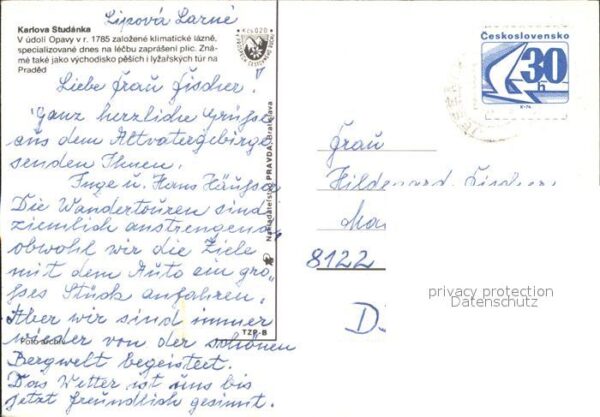 Lipová Lázně
Karlova Studánka
V údolí Opavy v r. 1785 založené klimatické lázně,
specializované dnes na léčbu zaprášení plic. Zná-
mé také jako východisko pěších i lyžařských túr na
Praděd
Kčs 0,20
Liebe Frau Fischer!
Ganz herzliche Grüße
aus dem Altvatergebirge
senden Ihnen,
Inge u. Hans
Die Wandertouren sind
ziemlich anstrengend
obwohl wir die Ziele
mit dem Auto ein gro-
sses Stück anfahren.
Aber wir sind immer
wieder von der schönen
Bergwelt begeistert.
Das Wetter ist uns bis
jetzt freundlich gesinnt.
Nakladatelství PRAVDA, Bratislava
TZP-B
Československo
30
h
Frau
Hildegard Fischer
8122
D
privacy protection
Datenschutz